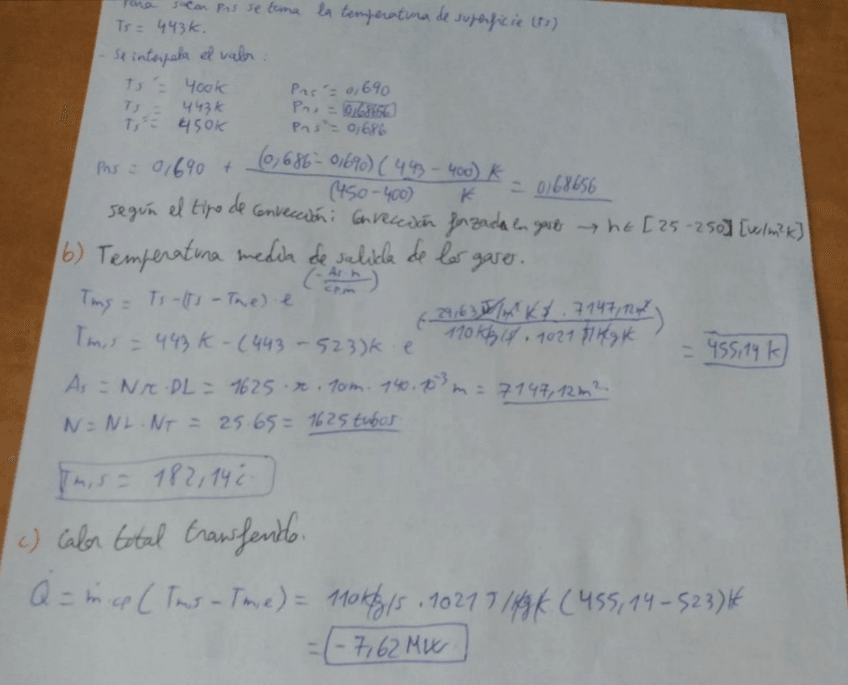 Para sacar Prs se toma la temperatura de superficie (Ts)
Ts = 443K.
- Se interpola el valor:
Ts' = 400K Prs' = 0,690
Ts = 443K Prs = 0,68656
Ts'' = 450K Prs'' = 0,686
Prs = 0,690 + (0,686 - 0,690)(443 - 400) K / (450 - 400) K = 0,68656
según el tipo de convección: Convección forzada en gases → h ∈ [25 - 250] [W/m²K]
b) Temperatura media de salida de los gases.
Tm,s = Ts - (Ts - Tm,e) · e^(- As·h / cp·m)
Tm,s = 443 K - (443 - 523)K · e^(- 29,63 W/m² K · 7147,12 m² / 110 Kg/s · 1021 J/KgK) = 455,14 K
As = Nπ·DL = 1625 · π · 10m · 140·10⁻³ m = 7147,12m²
N = NL · NT = 25·65 = 1625 tubos
Tm,s = 182,14
c) Calor total transferido.
Q̇ = ṁ·cp ( Tm,s - Tm,e ) = 110 Kg/s · 1021 J/KgK (455,14 - 523)K
= - 7,62 MW